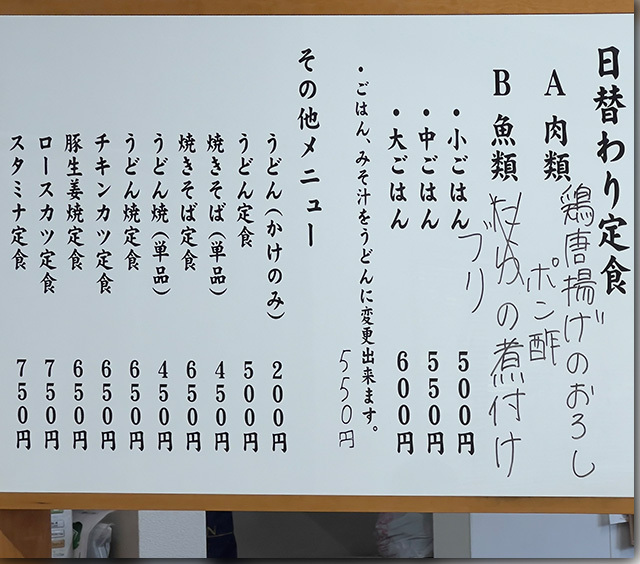 日替わり定食
A 肉類 鶏唐揚げのおろし
ポン酢
B 魚類 の煮付け
ブリ
・小ごはん 500円
・中ごはん 550円
・大ごはん 600円
・ごはん、みそ汁をうどんに変更出来ます。
550円
その他メニュー
うどん(かけのみ) 200円
うどん定食 500円
焼きそば(単品) 450円
焼きそば定食 650円
うどん焼(単品) 450円
うどん焼定食 650円
チキンカツ定食 650円
豚生姜焼定食 650円
ロースカツ定食 750円
スタミナ定食 750円